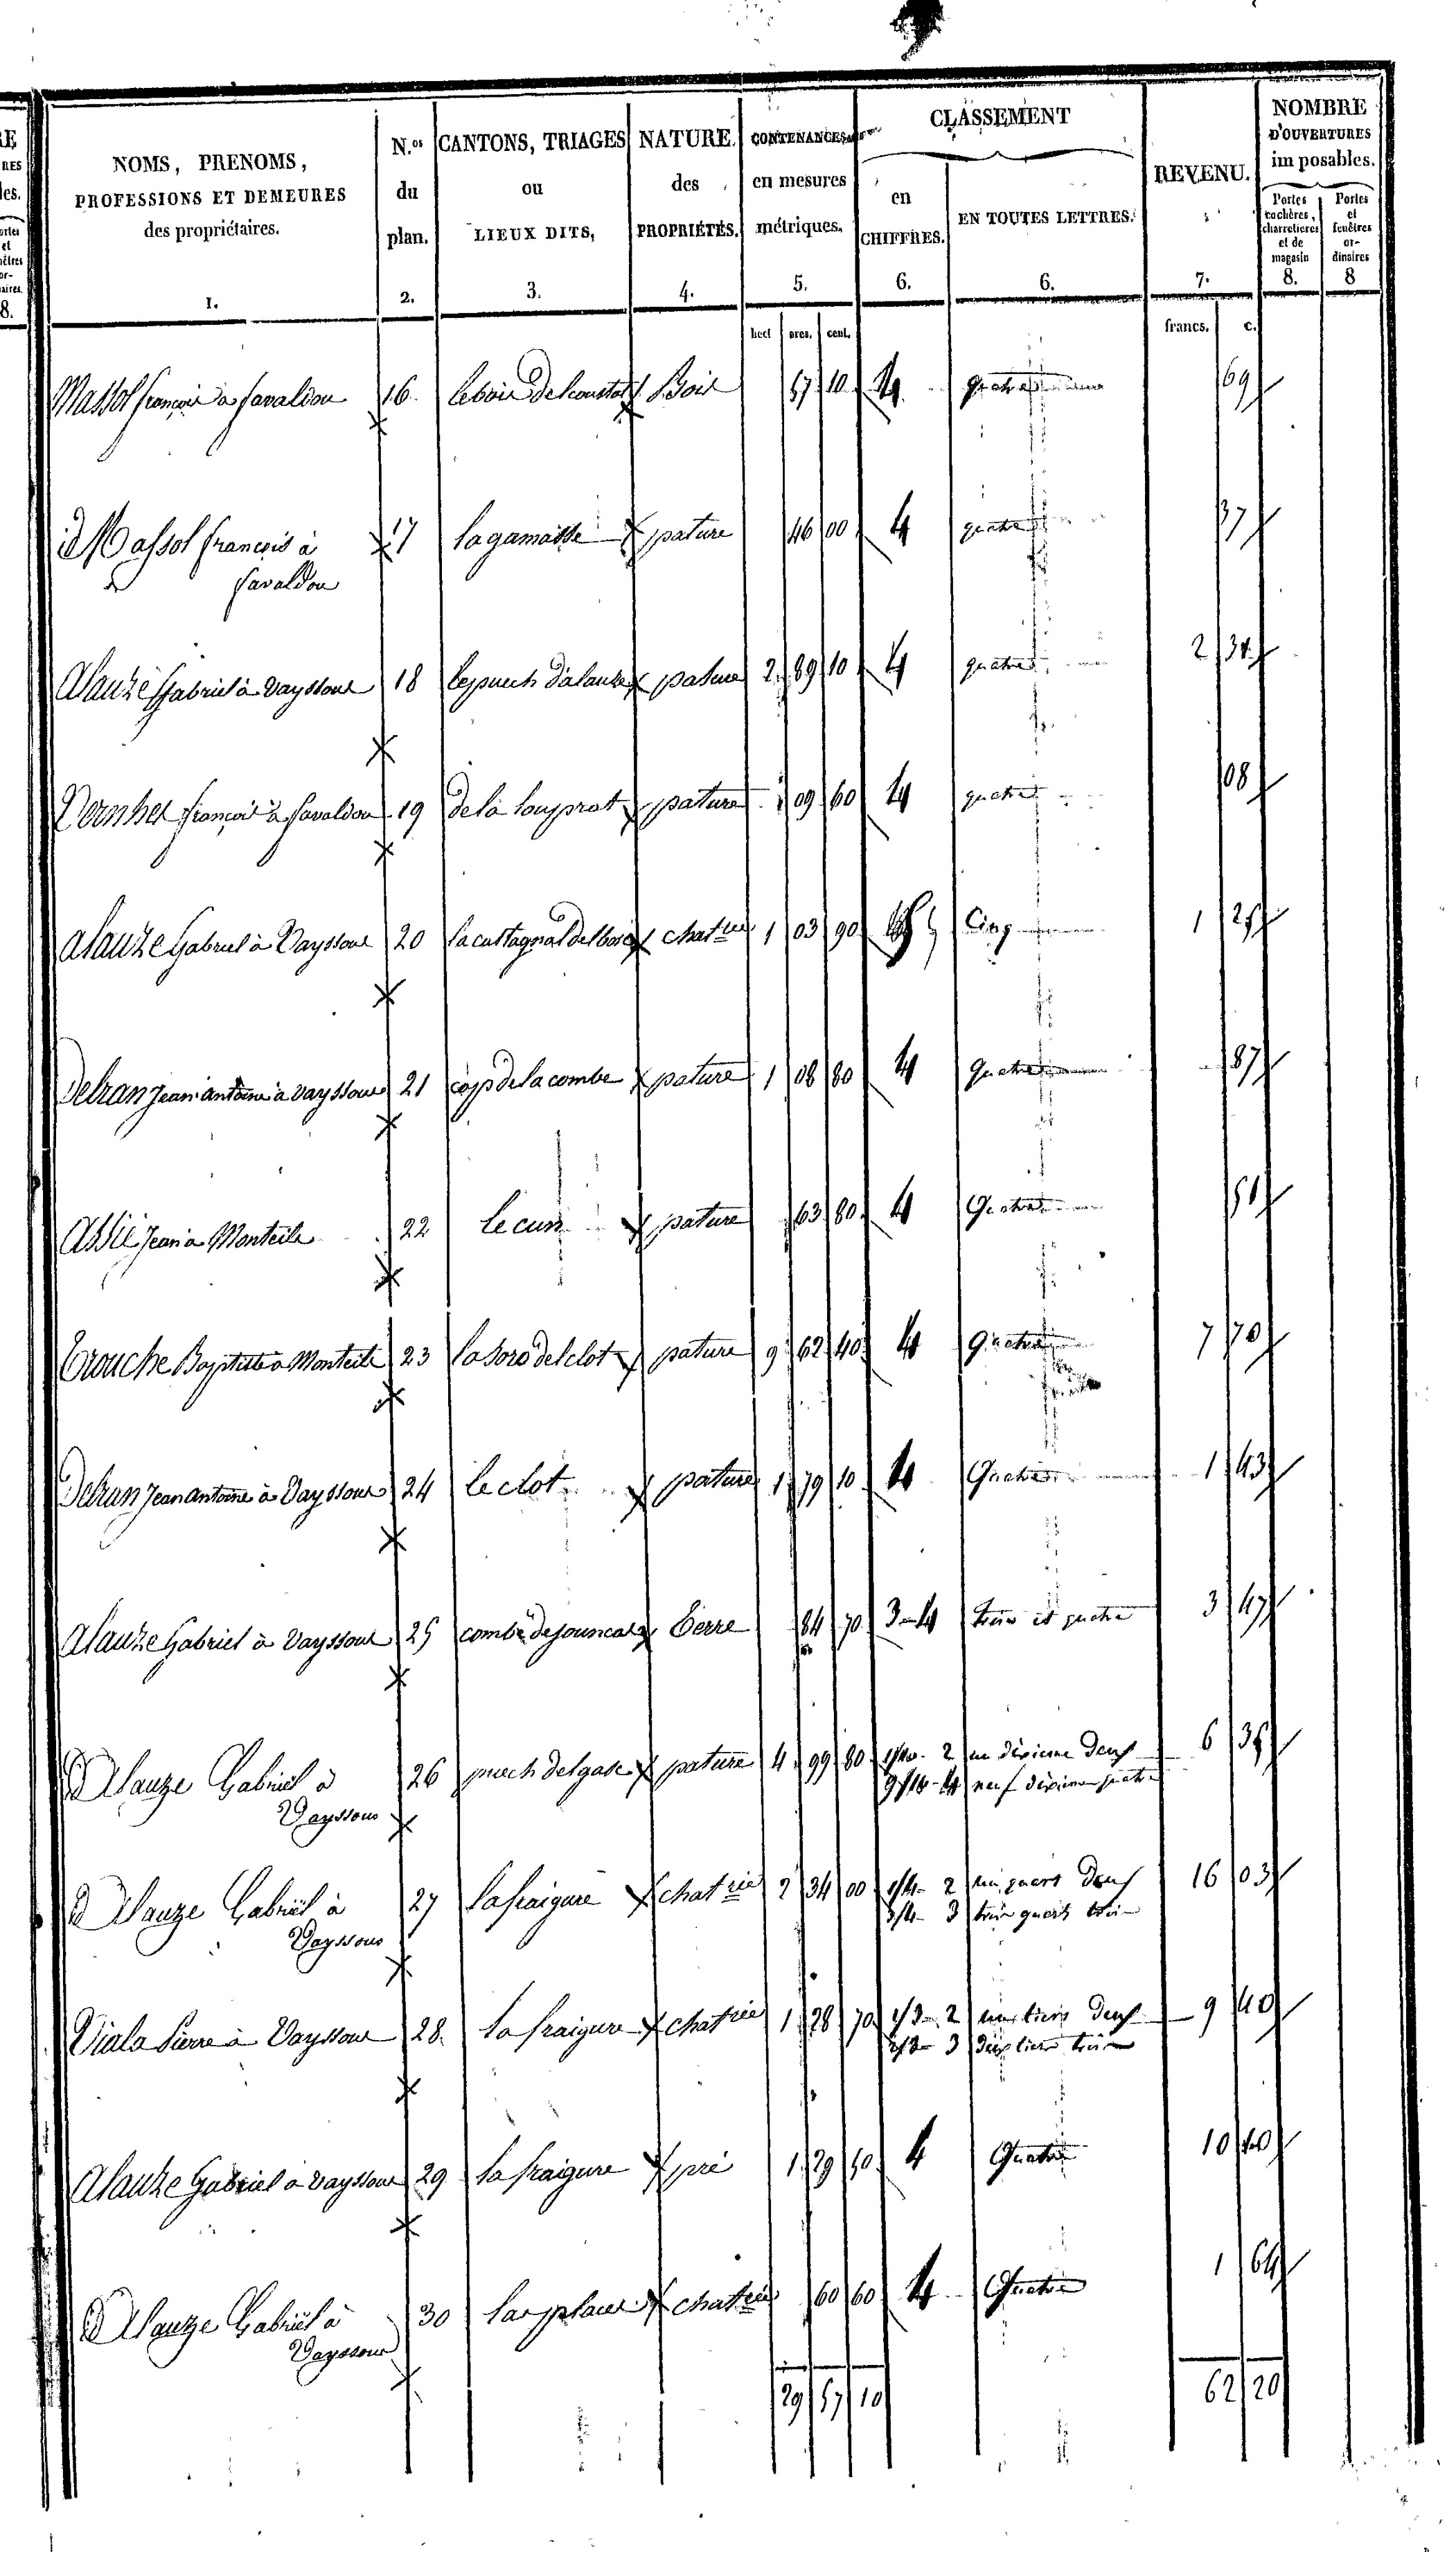 RE
NOMS, PRENOMS,
PROFESSIONS ET DEMEURES
des propriétaires.
1.
N.os
du
plan.
2.
CANTONS, TRIAGES
ou
LIEUX DITS,
3.
NATURE
des
PROPRIÉTÉS.
4.
CONTENANCES
en mesures
métriques.
5.
CLASSEMENT
en
CHIFFRES.
6.
EN TOUTES LETTRES.
6.
REVENU.
7.
NOMBRE
D'OUVERTURES
imposables.
Portes
cochères,
charretieres
et de
magasin
8.
Portes
et
fenêtres
or-
dinaires
8
hect ares. cent. francs. c.
Massol françois à favaldou 16 le bois Bois 57 10 4 quatre 69
Massol françois à 17 la gamasse pature 46 00 4 quatre 37
favaldou
Alauze Gabriel à Vayssous 18 le puech d'alauze pature 2 89 10 4 quatre 2 31
Vernhet françois à favaldou 19 de la pature 09 60 4 quatre 08
Alauze Gabriel à Vayssous 20 la castagnal del bosc 1 03 90 5 Cinq 1 25
Delran Jean antoine à Vayssous 21 cap de la combe pature 1 08 80 4 Quatre 87
Assié Jean à Monteils 22 le cun pature 63 80 4 Quatre 51
Trouche Baptiste à Monteils 23 del clot pature 9 62 40 4 Quatre 7 70
Delran Jean Antoine à Vayssous 24 le clot pature 1 79 10 4 Quatre 1 43
Alauze Gabriel à Vayssous 25 combe de jouncas Terre 84 70 3-4 trois et quatre 3 47
Alauze Gabriel à 26 puech del gase pature 4 99 80 1/10 - 2 un dixieme deux 6 35
Vayssous 9/10 - 4 neuf dixieme quatre
Alauze Gabriel à 27 la fraigure chatrie 2 34 00 1/4 - 2 un quart deux 16 03
Vayssous 3/4 - 3 trois quarts trois
Viala Pierre à Vayssous 28 la fraigure chatrie 1 28 70 1/3 - 2 un tiers deux 9 40
2/3 - 3 deux tiers trois
Alauze Gabriel à Vayssous 29 la fraigure pré 1 29 50 4 Quatre 10 40
Alauze Gabriel à 30 chatrie 60 60 4 Quatre 1 64
Vayssous
29 57 10 62 20